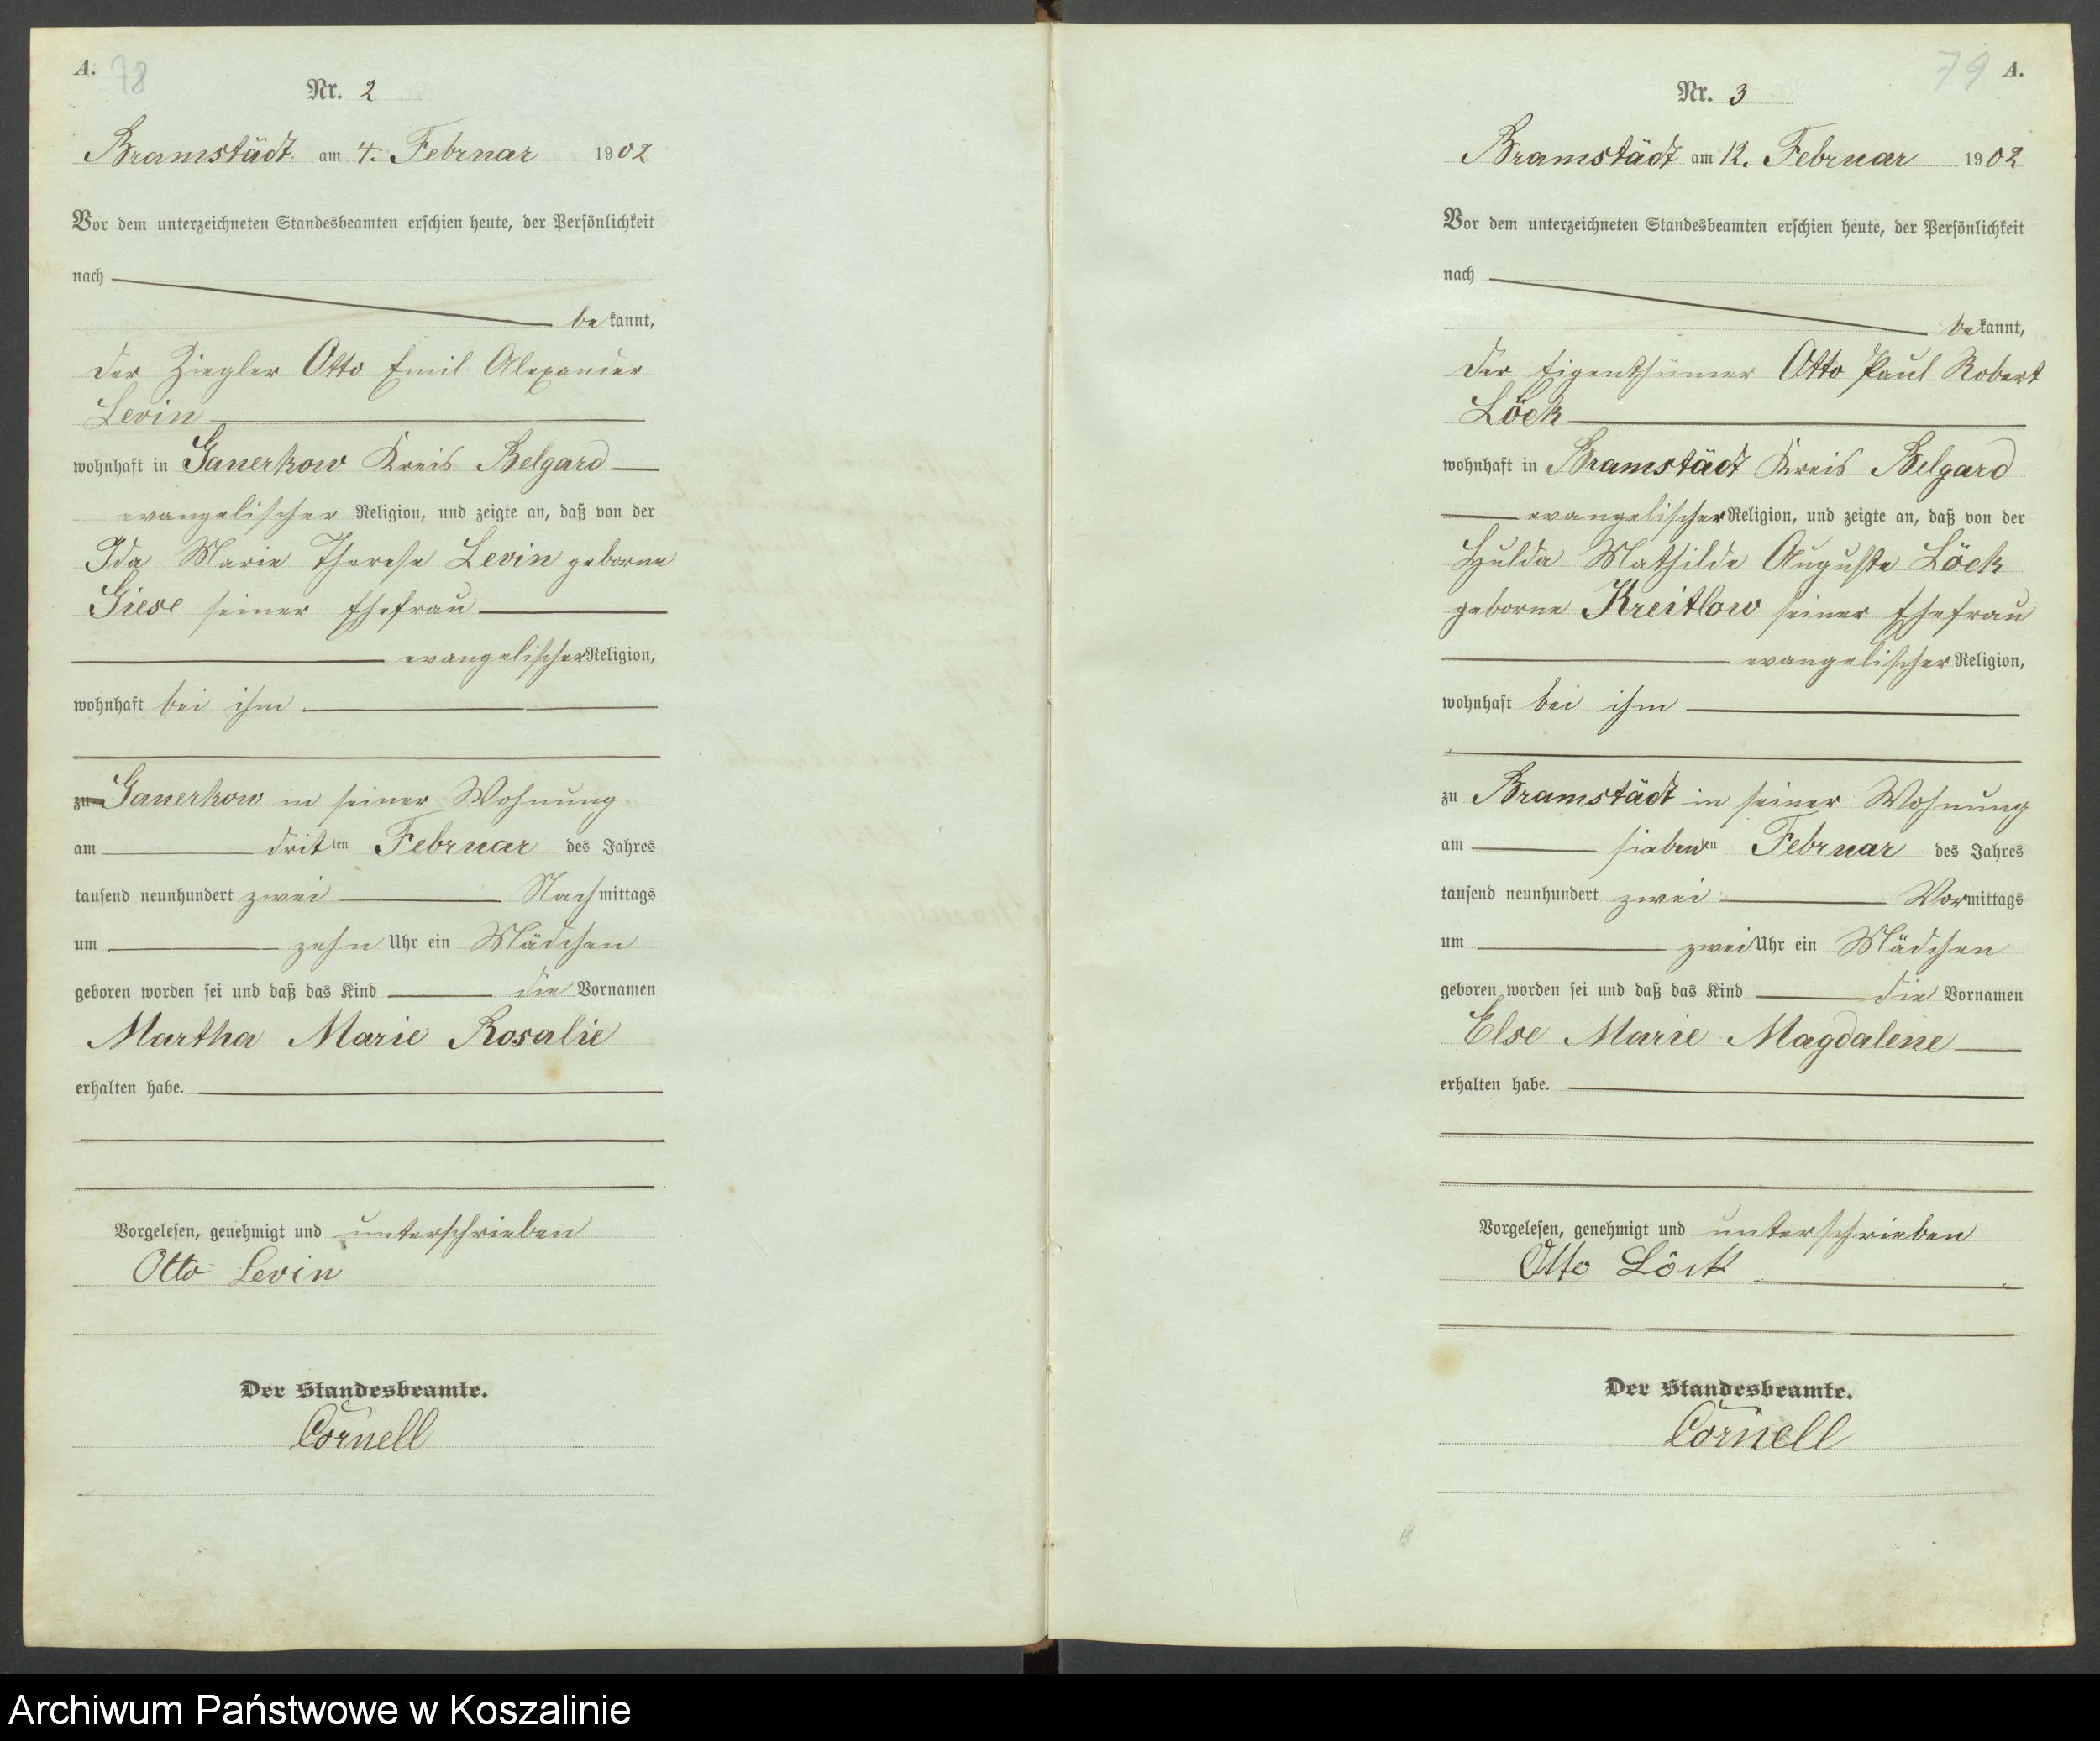 A. 78
Nr. 2
Bramstädt am 4. Februar 1902
Vor dem unterzeichneten Standesbeamten erschien heute, der Persönlichkeit
nach
bekannt,
der Ziegler Otto Emil Alexander
Levin
wohnhaft in Ganerkow Kreis Belgard
evangelischer Religion, und zeigte an, daß von der
Ida Marie Therese Levin geborne
Giese seiner Ehefrau
evangelischer Religion,
wohnhaft bei ihm
zu Ganerkow in seiner Wohnung
am dritten Februar des Jahres
tausend neunhundert zwei Nachmittags
um zehn Uhr ein Mädchen
geboren worden sei und daß das Kind die Vornamen
Martha Marie Rosalie
erhalten habe.
Vorgelesen, genehmigt und unterschrieben
Otto Levin
Der Standesbeamte.
Cornell
79 A.
Nr. 3
Bramstädt am 12. Februar 1902
Vor dem unterzeichneten Standesbeamten erschien heute, der Persönlichkeit
nach
bekannt,
der Eigenthümer Otto Paul Robert
Löck
wohnhaft in Bramstädt Kreis Belgard
evangelischer Religion, und zeigte an, daß von der
Hulda Mathilde Auguste Löck
geborne Kreitlow seiner Ehefrau
evangelischer Religion,
wohnhaft bei ihm
zu Bramstädt in seiner Wohnung
am siebenten Februar des Jahres
tausend neunhundert zwei Vormittags
um zwei Uhr ein Mädchen
geboren worden sei und daß das Kind die Vornamen
Else Marie Magdalene
erhalten habe.
Vorgelesen, genehmigt und unterschrieben
Otto Löck
Der Standesbeamte.
Cornell
Archiwum Państwowe w Koszalinie